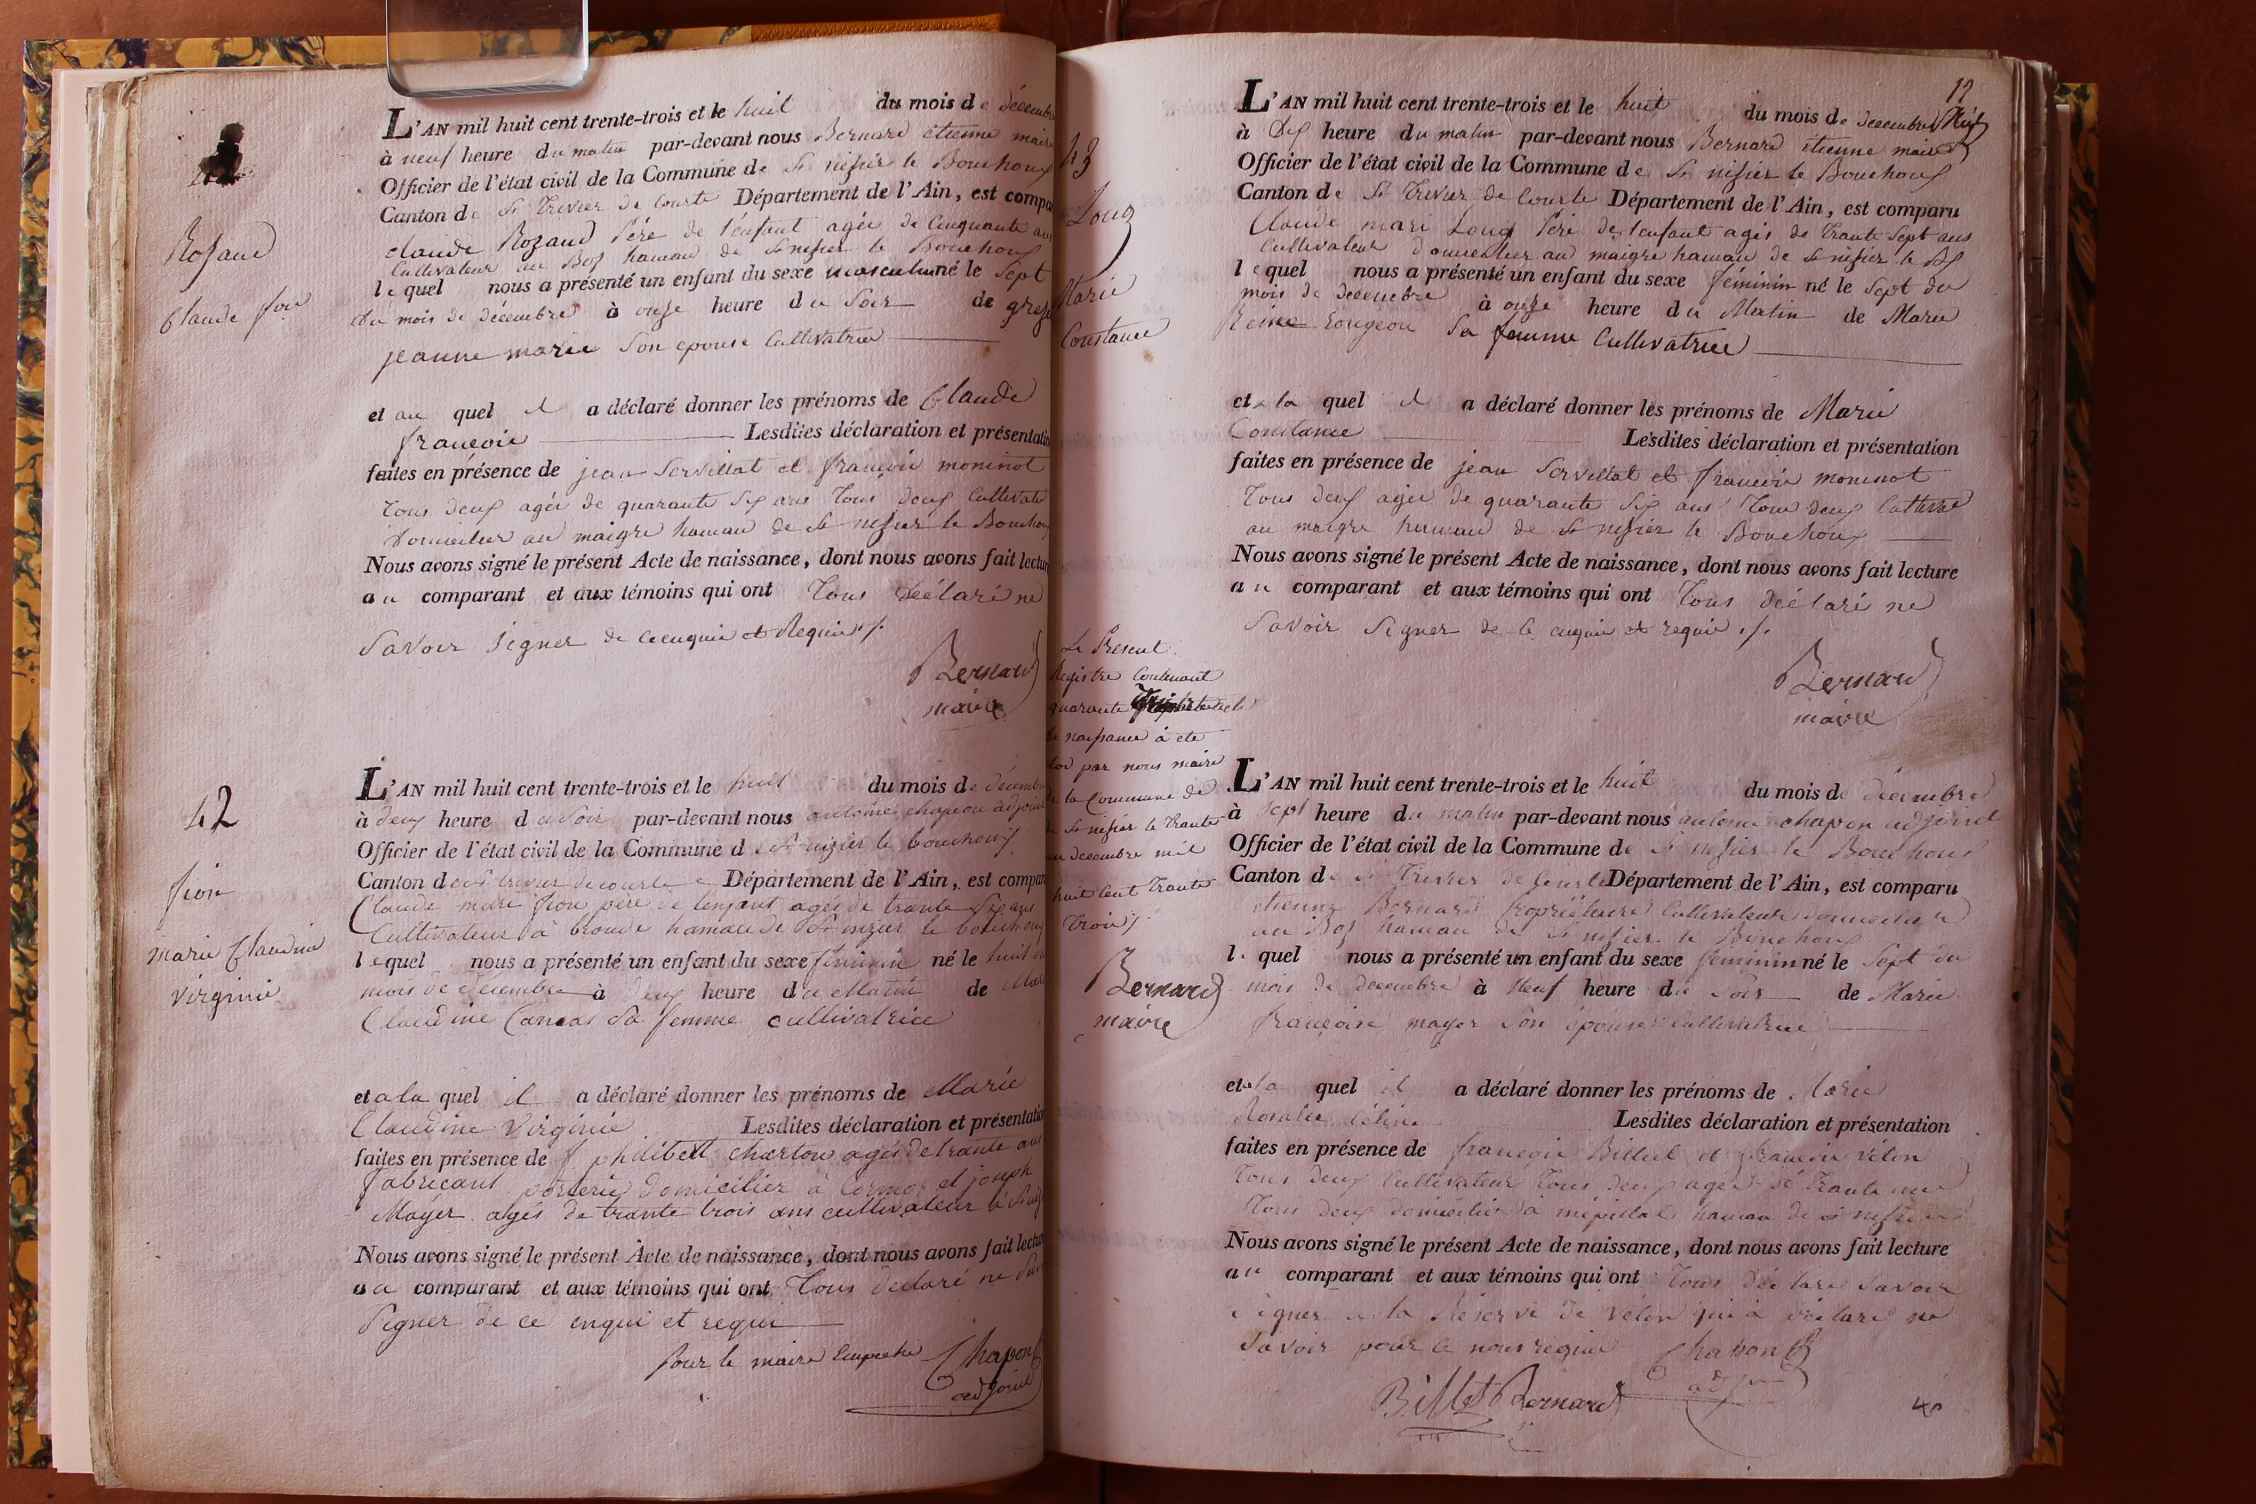 Rozand
Claude foi
L'AN mil huit cent trente-trois et le huit du mois de décembre
à neuf heure du matin par-devant nous Bernard étienne maire
Officier de l'état civil de la Commune de St nisier le Bouchoux
Canton de St Trivier de Courte Département de l'Ain, est compa
claude Rozand Père de l'enfant agée de Cinquante ans
Cultivateur au Boz hamau de St nisier le Bouchoux
lequel nous a présenté un enfant du sexe masculin né le Sept
du mois de décembre à onze heure du Soir de
jeanne marie Son epouse Cultivatrice
et au quel il a déclaré donner les prénoms de Claude
françois Lesdites déclaration et présentation
faites en présence de jean Servillat et françois moninot
Tous deux agés de quarante Six ans Tous deux Cultivate
domicilier au maigre hamau de St nisier le Bouchoux
Nous avons signé le présent Acte de naissance, dont nous avons fait lecture
au comparant et aux témoins qui ont Tous déclaré ne
Savoir Signer de ce enquis et Requis ./.
Bernard
maire
42
fion
marie Claudine
virginie
L'AN mil huit cent trente-trois et le huit du mois de décembre
à deux heure du Soir par-devant nous antoine chapon adjoint
Officier de l'état civil de la Commune de St nizier le bouchoux
Canton de St trivier de courte Département de l'Ain, est compar
Claude marie fion père de lenfant agés de trante Six ans
Cultivateur à hamau de St nizier le bouchoux
lequel nous a présenté un enfant du sexe féminin né le huit du
mois de décembre à deux heure du Matin de Marie
Claudine Cancal Sa femme cultivatrice
et a la quel il a déclaré donner les prénoms de Marie
Claudine Virginie Lesdites déclaration et présentation
faites en présence de philibert charton agés de trante ans
fabricant domicilier à Cormoz et joseph
Mayer agés de trante trois ans cultivateur à
Nous avons signé le présent Acte de naissance, dont nous avons fait lecture
au comparant et aux témoins qui ont Tous déclaré ne
Signer de ce enqui et requi
pour le maire Empeche Chapon
adjoint
12
43
Long
Marie
Constance
L'AN mil huit cent trente-trois et le huit du mois de décembre
à Dix heure du matin par-devant nous Bernard étienne maire
Officier de l'état civil de la Commune de St nisier le Bouchoux
Canton de St Trivier de Courte Département de l'Ain, est comparu
Claude mari Long Père de l'enfant agés de Trante Sept ans
Cultivateur domicilier au maigre hamau de St nisier le Bx
lequel nous a présenté un enfant du sexe féminin né le Sept du
mois de decembre à onze heure du Matin de Marie
Reine Sa femme Cultivatrice
et a la quel il a déclaré donner les prénoms de Marie
Constance Lesdites déclaration et présentation
faites en présence de jean Servillat et françois moninot
Tous deux agée de quarante Six ans Tous deux Cultivat
au maigre hamau de St nisier le Bouchoux
Nous avons signé le présent Acte de naissance, dont nous avons fait lecture
au comparant et aux témoins qui ont Tous déclaré ne
Savoir Signer de ce enquis et requis ./.
Bernard
maire
Le Present
Registre Contenant
quarante
de naissance à eté
clos par nous maire
de la Commune de
de St nisier le Trante
un decembre mil
huit Cent Trante
Trois
Bernard
maire
L'AN mil huit cent trente-trois et le huit du mois de décembre
à Sept heure du matin par-devant nous antoine chapon adjoint
Officier de l'état civil de la Commune de St nisier le Bouchoux
Canton de St Trivier de Courte Département de l'Ain, est comparu
étienne Bernard Propriétaire Cultivateur domicilier
au Boz hamau de St nisier le Bouchoux
lequel nous a présenté un enfant du sexe féminin né le Sept du
mois de decembre à Neuf heure du Soir de Marie
françoise mayer Son épouse Cultivatrice
et a la quel il a déclaré donner les prénoms de Marie
Rosalie Céline Lesdites déclaration et présentation
faites en présence de françois Billiet et françois vélon
Tous deux Cultivateur Tous deux agée de Trante un
Tous deux domicilier à hamau de St nisier
Nous avons signé le présent Acte de naissance, dont nous avons fait lecture
au comparant et aux témoins qui ont Tous déclaré Savoir
Signer a la Réserve de vélon qui à déclaré ne
Savoir pour ce nous requis Chapon
adj
Billet Bernard